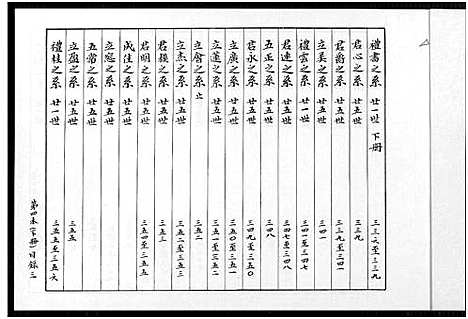 禮書之系 廿一世 下册 三三六至三三九
君心之系 廿五世 三三九
君喬之系 廿五世 三三九至三四一
立美之系 廿五世 三四一
禮雲之系 廿一世 三四一至三四七
君連之系 廿五世 三四七至三四八
五正之系 廿五世 三四八
君永之系 廿五世 三四九至三五〇
立廣之系 廿五世 三五〇至三五一
立蓮之系 廿五世 三五一至三五二
立會之系 三五二
立杰之系 廿五世 三五二至三五三
君穎之系 廿五世 三五三
君明之系 廿五世 三五四至三五五
成佳之系 廿五世
立寬之系 廿五世
五常之系 廿五世
立盈之系 廿五世 三五五
禮桂之系 廿一世 三五五至三五六
第四本(下册)目錄三